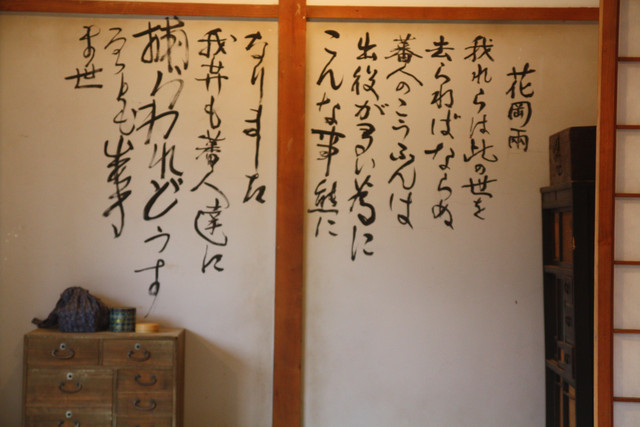 花岡兩
我れらは此の世を
去らねばならぬ
蕃人のこうふんは
出役が多い為に
こんな事態に
なりました
我等も蕃人達に
捕らわれどうす
ることも出来